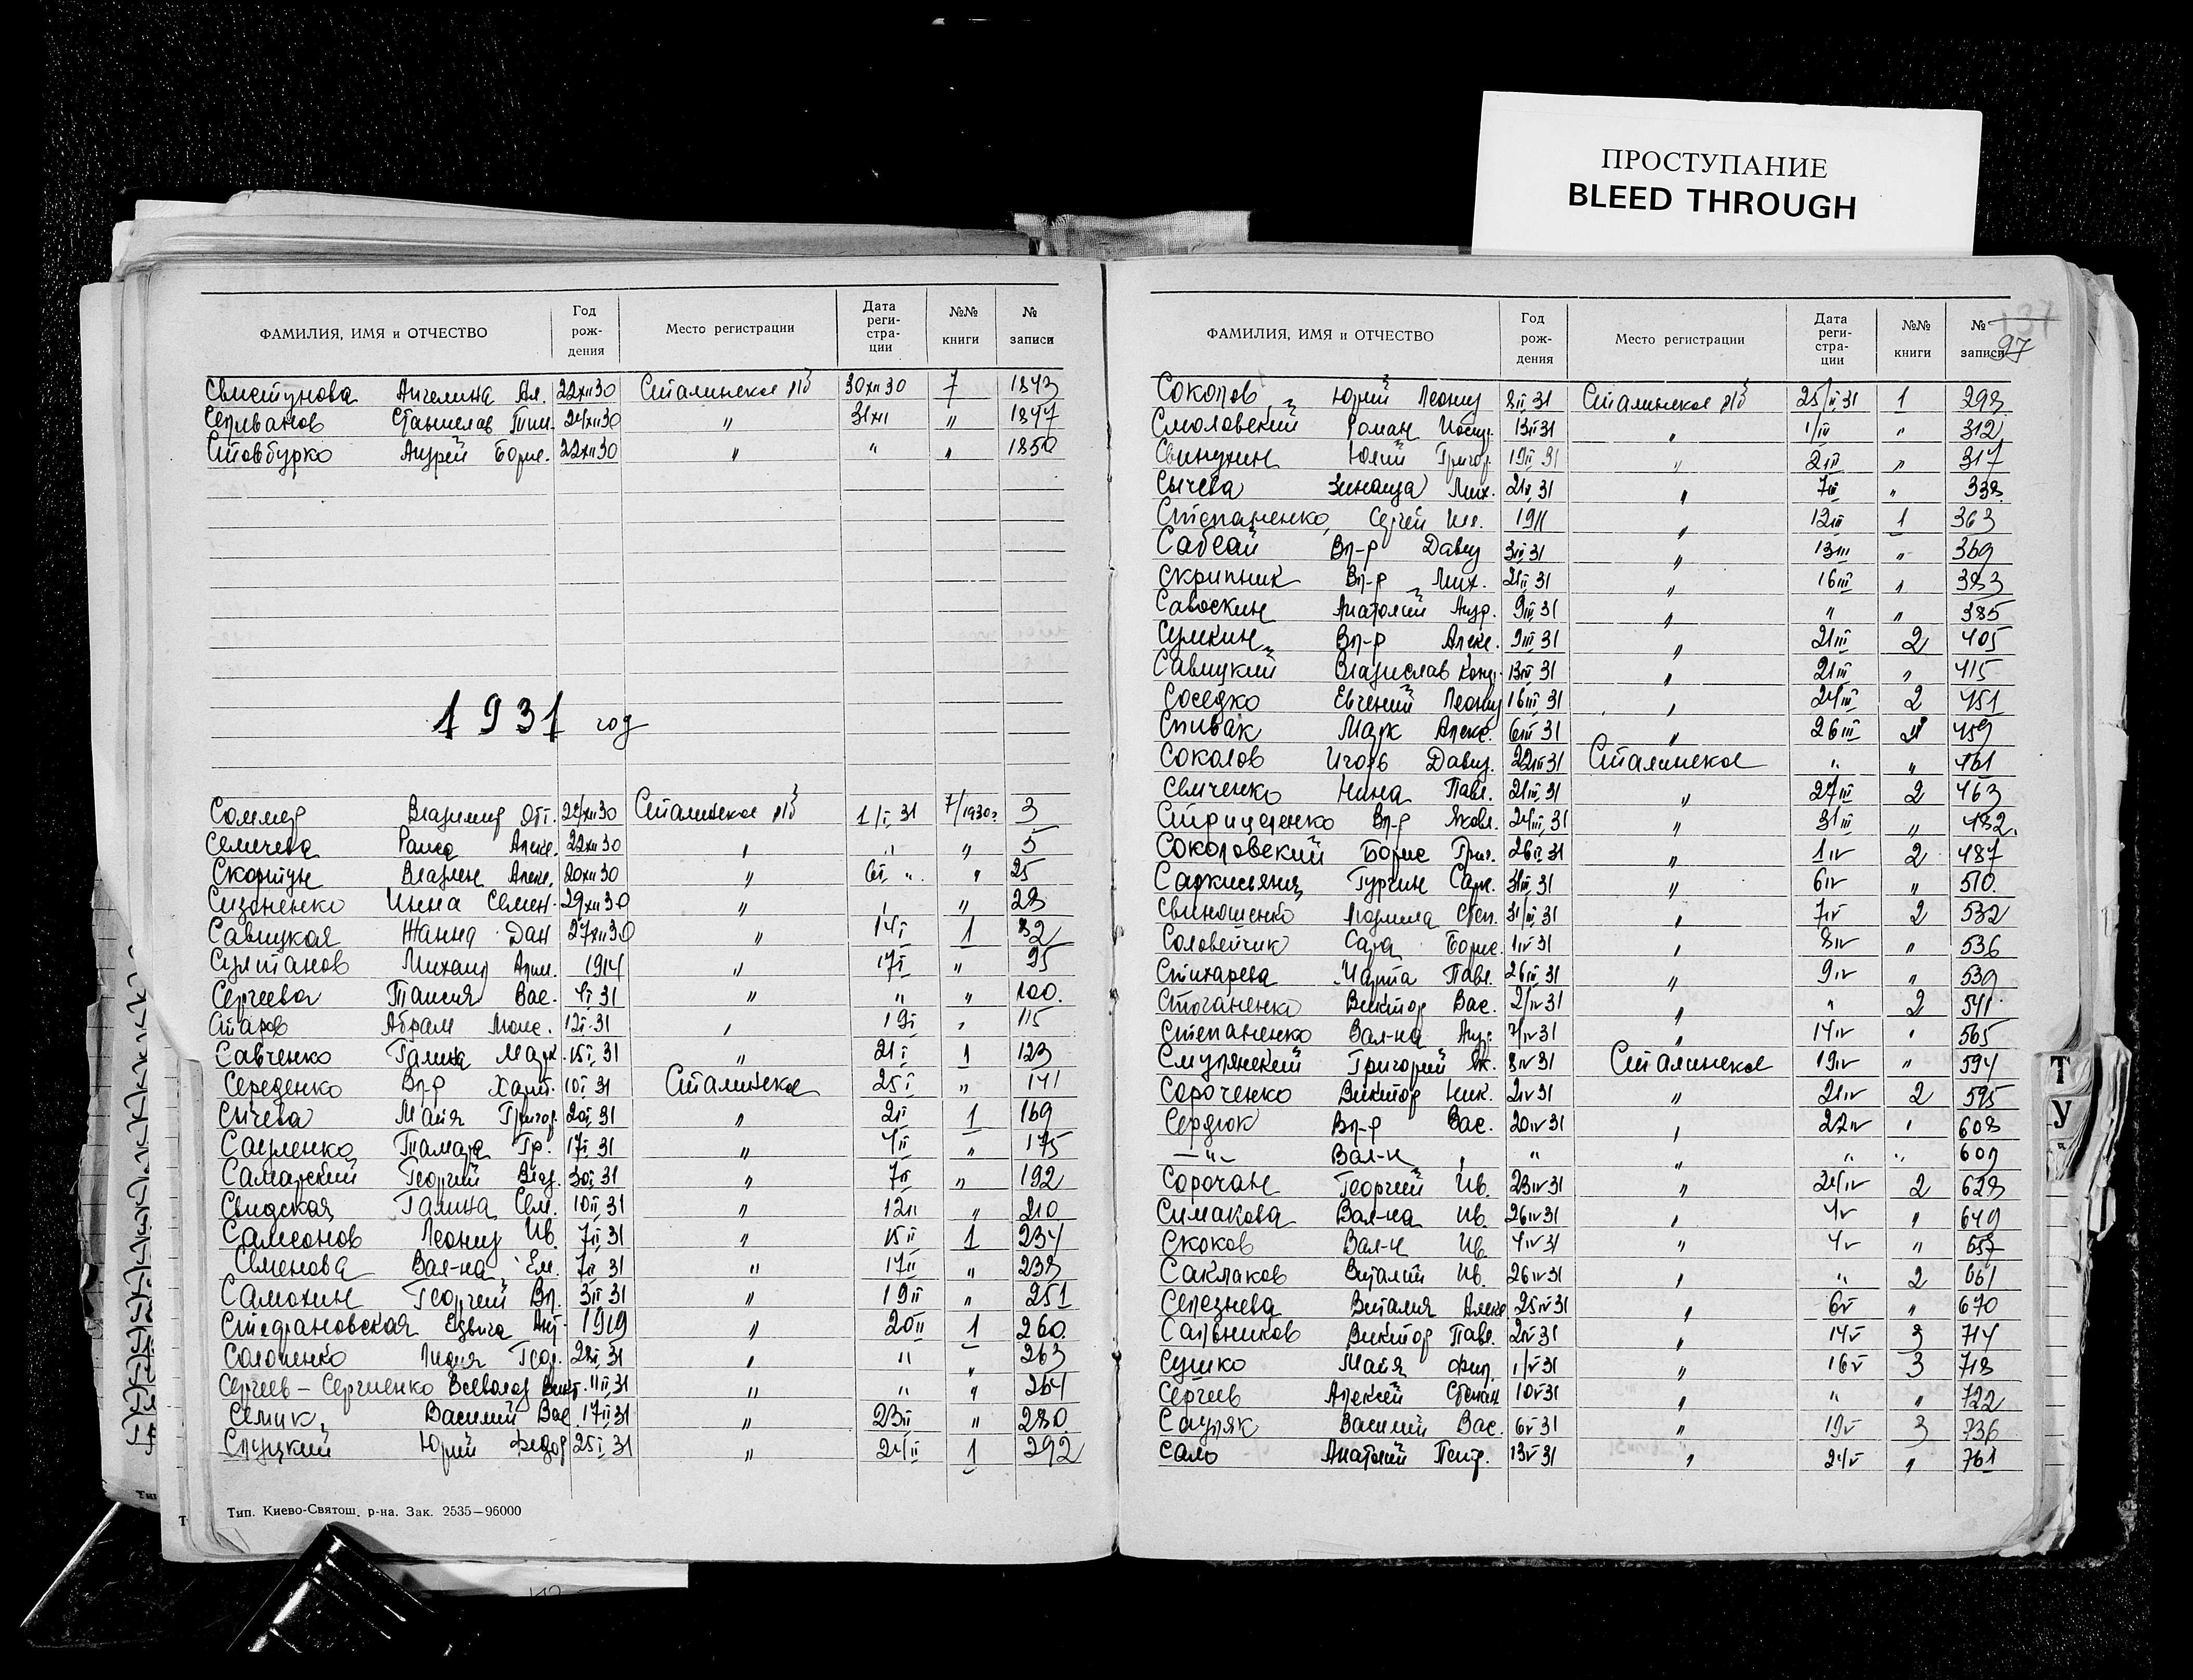 ПРОСТУПАНИЕ
BLEED THROUGH
ФАМИЛИЯ, ИМЯ и ОТЧЕСТВО Год рождения Место регистрации Дата регистрации №№ книги № записи
Свистунова Ангелина Ал. 22XII30 Сталинское р/б 30XII30 7 1843
Селиванов Станислав Тим. 24XII30 " 31XII " 1847
Стовбурко Андрей Борис. 22XII30 " " " 1850
1931 год
Соммер Владимир Отт. 24XII30 Сталинское р/б 1/I 31 7/1930г 3
Семичева Раиса Алекс. 22XII30 " " " 5
Скортун Владлен Алекс. 20XII30 " 6I " " 25
Сизоненко Инна Семен. 29XII30 " " " 28
Савицкая Жанна Дан 27XII30 " 14I 1 82
Султанов Михаил 1914 " 17I " 95
Сергеева Таисия Вас. 4I 31 " " " 100.
Старов Абрам Моис. 12I.31 " 19I " 115
Савченко Галина Марк. 15I 31 " 21I 1 123
Середенко Вл-р Харит. 10I 31 Сталинское 25I " 141
Сычева Майя Григор. 20I 31 " 2II 1 169
Сауленко Тамара Гр. 17I 31 " 4II " 175
Самарский Георгий Влад. 30I 31 " 7II " 192
Свидская Галина Сем. 10II 31 " 12II " 210
Самсонов Леонид Ив. 7II 31 " 15II 1 234
Семенова Вал-на Ем. 7II 31 " 17II " 238
Самохин Георгий Вл. 3II 31 " 19II " 251
Стефановская Ядвига Ант. 1919 " 20II 1 260.
Солоненко Лидия Геор. 28I 31 " " " 263
Сергеев – Сергиенко Всеволод Викт. 11II 31 " " " 264
Семик Василий Вас 17II 31 " 23II " 280.
Слуцкий Юрий Федор 25I 31 " 24II 1 292
Тип. Киево-Святош. р-на. Зак. 2535—96000
97
ФАМИЛИЯ, ИМЯ и ОТЧЕСТВО Год рождения Место регистрации Дата регистрации №№ книги № записи
Соколов Юрий Леонид 8II 31 Сталинское р/б 25/II 31 1 298
Смоловский Роман Иосиф. 13II31 " 1/III " 312
Свинухин Юлий Григор. 19II 31 " 2III " 317
Сычева Зинаида Мих. 21II 31 " 7III " 338
Степаненко, Сергей 1911 " 12III 1 363
Сабсай Вл-р Давид 3III 31 " 13III " 369
Скрипник Вл-р Мих. 21II 31 " 16III " 383
Савоскин Анатолий Андр. 9III 31 " " " 385
Сумкин Вл-р Алекс. 9III 31 " 21III 2 405
Савицкий Владислав Конд. 13III 31 " 21III " 415
Соседко Евгений Леонид 16III 31 " 24III 2 451
Спивак Марк Алекс. 6III 31 " 26III 2 459
Соколов Игорь Давид. 22III31 Сталинское " " 461
Семченко Нина Павл. 21III 31 " 27III 2 463
Вл-р Яковл. 24III 31 " 31III " 482.
Соколовский Борис Григ. 26III 31 " 1IV 2 487
Саркисьянц Гургин Сарк. 31III 31 " 6IV " 510.
Свиношенко Людмила Степ. 31/III 31 " 7IV 2 532
Соловейчик Сара Борис. 1IV 31 " 8IV " 536
Стихарева Марта Павл. 26III 31 " 9IV " 539
Стоганенко Виктор Вас. 2/IV 31 " " 2 541
Степаненко Вал-на Анд. 7/IV 31 " 14IV " 565
Смулянский Григорий 8IV 31 Сталинское 19IV " 594
Сороченко Виктор Ник. 2IV 31 " 21IV 2 595
Сердюк Вл-р Вас. 20IV 31 " 22IV " 608
—"— Вал-н " " " " " 609
Сорочан Георгий Ив. 23IV 31 " 24IV 2 628
Симакова Вал-на Ив. 26IV 31 " 4V " 649
Скоков Вал-н Ив. 4IV 31 " 4V " 657
Саклаков Виталий Ив. 26IV 31 " " 2 661
Селезнева Виталия Алекс 25IV 31 " 6V " 670
Сальников Виктор Павл. 2IV 31 " 14V 3 714
Сушко Майя Фил. 1/V 31 " 16V 3 718
Сергеев Алексей Степан 10V 31 " " " 722
Сауляк Василий Вас. 6V 31 " 19V 3 736
Сало Анатолий Петр. 13V 31 " 24V " 761
Т
У